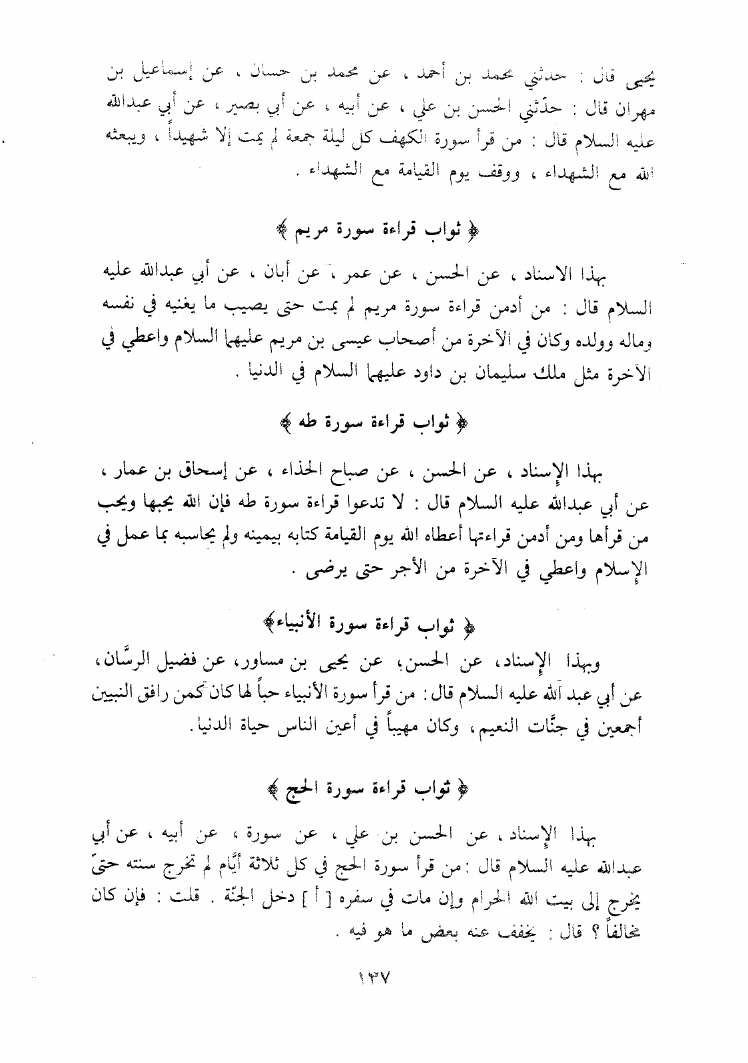 يحيى قال : حدثني محمد بن أحمد ، عن محمد بن حسان ، عن إسماعيل بن
مهران قال : حدّثني الحسن بن علي ، عن أبيه ، عن أبي بصير ، عن أبي عبدالله
عليه السلام قال : من قرأ سورة الكهف كل ليلة جمعة لم يمت إلا شهيداً ، ويبعثه
الله مع الشهداء ، ووقف يوم القيامة مع الشهداء .
﴿ ثواب قراءة سورة مريم ﴾
بهذا الاسناد ، عن الحسن ، عن عمر ، عن أبان ، عن أبي عبدالله عليه
السلام قال : من أدمن قراءة سورة مريم لم يمت حتى يصيب ما يغنيه في نفسه
وماله وولده وكان في الآخرة من أصحاب عيسى بن مريم عليهما السلام واعطي في
الآخرة مثل ملك سليمان بن داود عليهما السلام في الدنيا .
﴿ ثواب قراءة سورة طه ﴾
بهذا الإسناد ، عن الحسن ، عن صباح الحذاء ، عن إسحاق بن عمار ،
عن أبي عبدالله عليه السلام قال : لا تدعوا قراءة سورة طه فإن الله يحبها ويحب
من قرأها ومن أدمن قراءتها أعطاه الله يوم القيامة كتابه بيمينه ولم يحاسبه بما عمل في
الإسلام واعطي في الآخرة من الأجر حتى يرضى .
﴿ ثواب قراءة سورة الأنبياء ﴾
وبهذا الإسناد، عن الحسن، عن يحيى بن مساور، عن فضيل الرسَّان،
عن أبي عبد الله عليه السلام قال: من قرأ سورة الأنبياء حباً لها كان كمن رافق النبيين
أجمعين في جنَّات النعيم، وكان مهيباً في أعين الناس حياة الدنيا.
﴿ ثواب قراءة سورة الحج ﴾
بهذا الإسناد ، عن الحسن بن علي ، عن سورة ، عن أبيه ، عن أبي
عبدالله عليه السلام قال : من قرأ سورة الحج في كل ثلاثة أيَّام لم تخرج سنته حتىّ
يخرج إلى بيت الله الحرام وإن مات في سفره [ أ ] دخل الجنّة . قلت : فإن كان
مخالفاً ؟ قال : يخفف عنه بعض ما هو فيه .
١٣٧